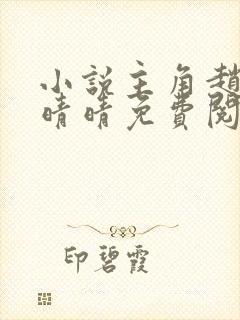 小説主角趙
晴晴免費閱
印碧霞